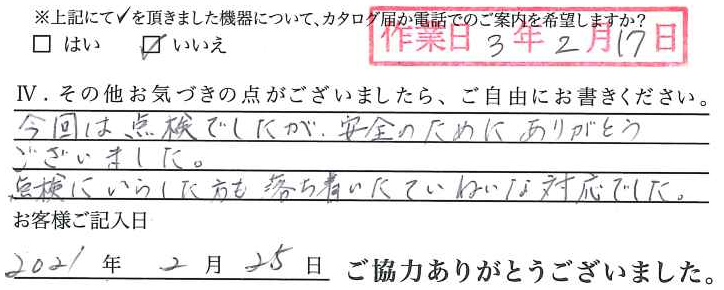 ※上記にて✓を頂きました機器について、カタログ届か電話でのご案内を希望しますか?
□ はい ☑ いいえ
作業日 3年2月17日
Ⅳ．その他お気づきの点がございましたら、ご自由にお書きください。
今回は点検でしたが、安全のためにありがとう
ございました。
点検にいらした方も落ち着いたていねいな対応でした。
お客様ご記入日
2021年 2月 25日 ご協力ありがとうございました。